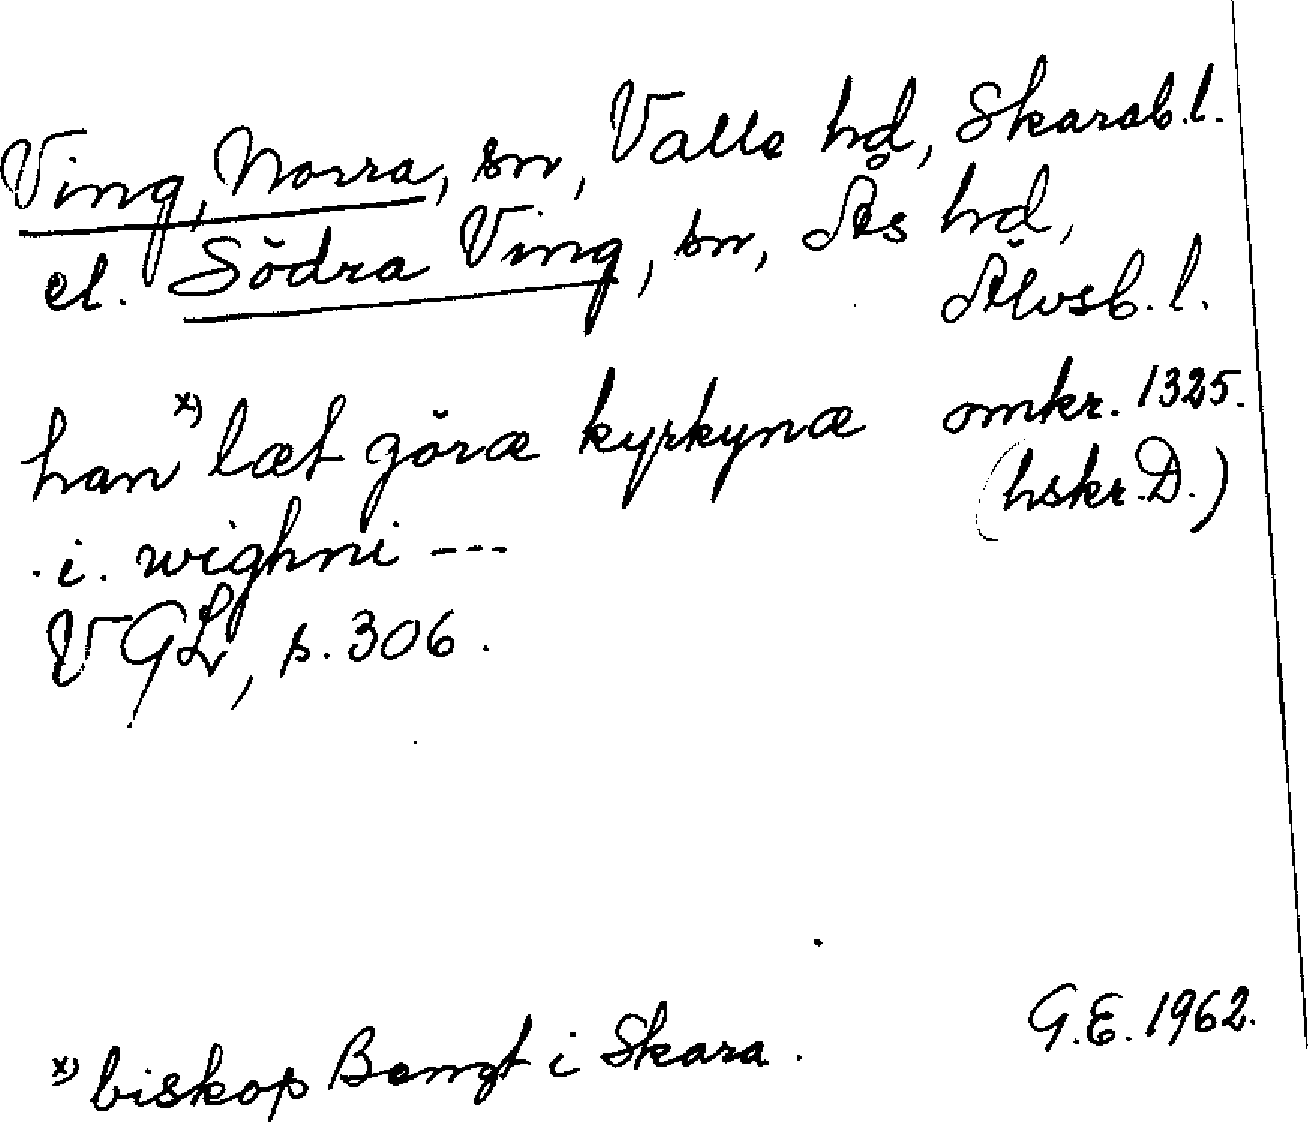 Ving, Norra, sn, Valle hd, Skarab.l.
el. Södra Ving, sn, Ås hd,
Älvsb.l.
han x) læt göræ kyrkynæ omkr. 1325.
.i. wighni --- (hskr. D.)
VGL, s. 306.
x) biskop Bengt i Skara. G.E. 1962.